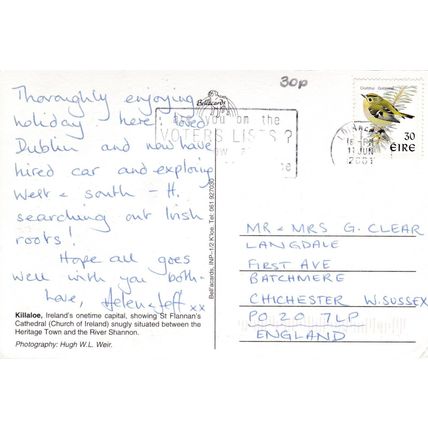 30p
Thoroughly enjoying
holiday here loved
Dublin and now have
hired car and exploring
West & south - H.
searching out Irish
roots!
Hope all goes
well with you both.
Love, Helen & Jeff xx
Killaloe, Ireland's onetime capital, showing St Flannan's
Cathedral (Church of Ireland) snugly situated between the
Heritage Town and the River Shannon.
Photography: Hugh W.L. Weir.
Bell'acards
Bell'acards. INP-1/2 K'loe. Tel: 061 927030
on the
VOTERS LISTS?
11 JUN
2001
30
ÉIRE
MR & MRS G. CLEAR
LANGDALE
FIRST AVE
BATCHMERE
CHICHESTER W. SUSSEX
PO 20 7LP
ENGLAND